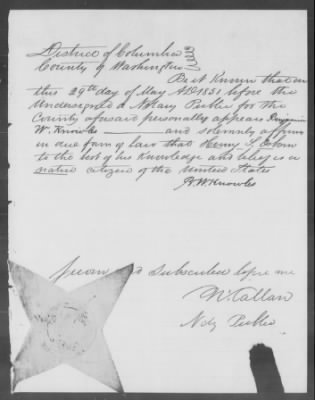 District of Columbia
County of Washington
Be it Known that on
this 29th day of May AD 1851 before the
Undersigned a Notary Public for the
County aforesaid personally appears Benjamin
W. Knowles and solemnly affirm
in due form of law that Henry S.
to the best of his Knowledge and belief is a
native citizen of the United States
B.W. Knowles
Sworn and Subscribed before me
N Callan
Noty Public